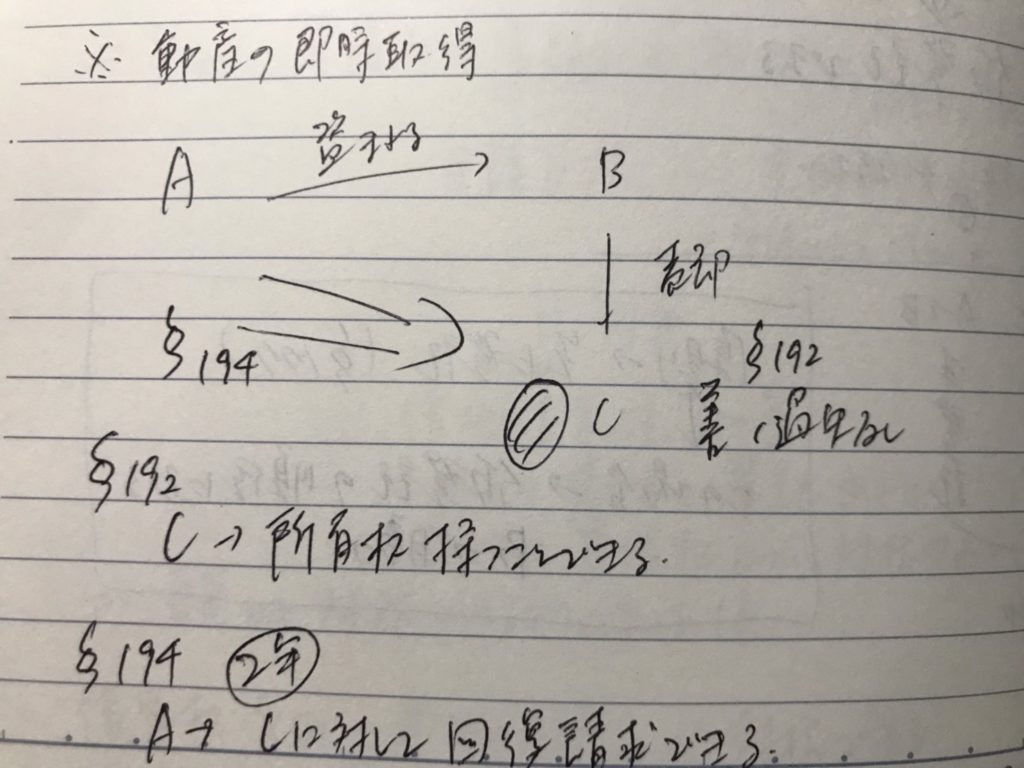 ※ 動産の即時取得
A 盗まれる B
売却
§194 §192
C 善、過失なし
§192
C→所有権持つことができる.
§194 2年
A→ Cに対して回復請求できる.